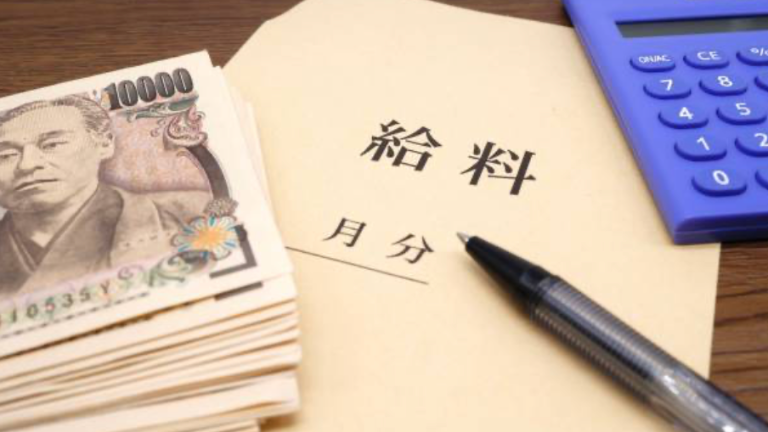 10000
給料
月分
ON/AC CE %
7 8
4 5
1 2
0